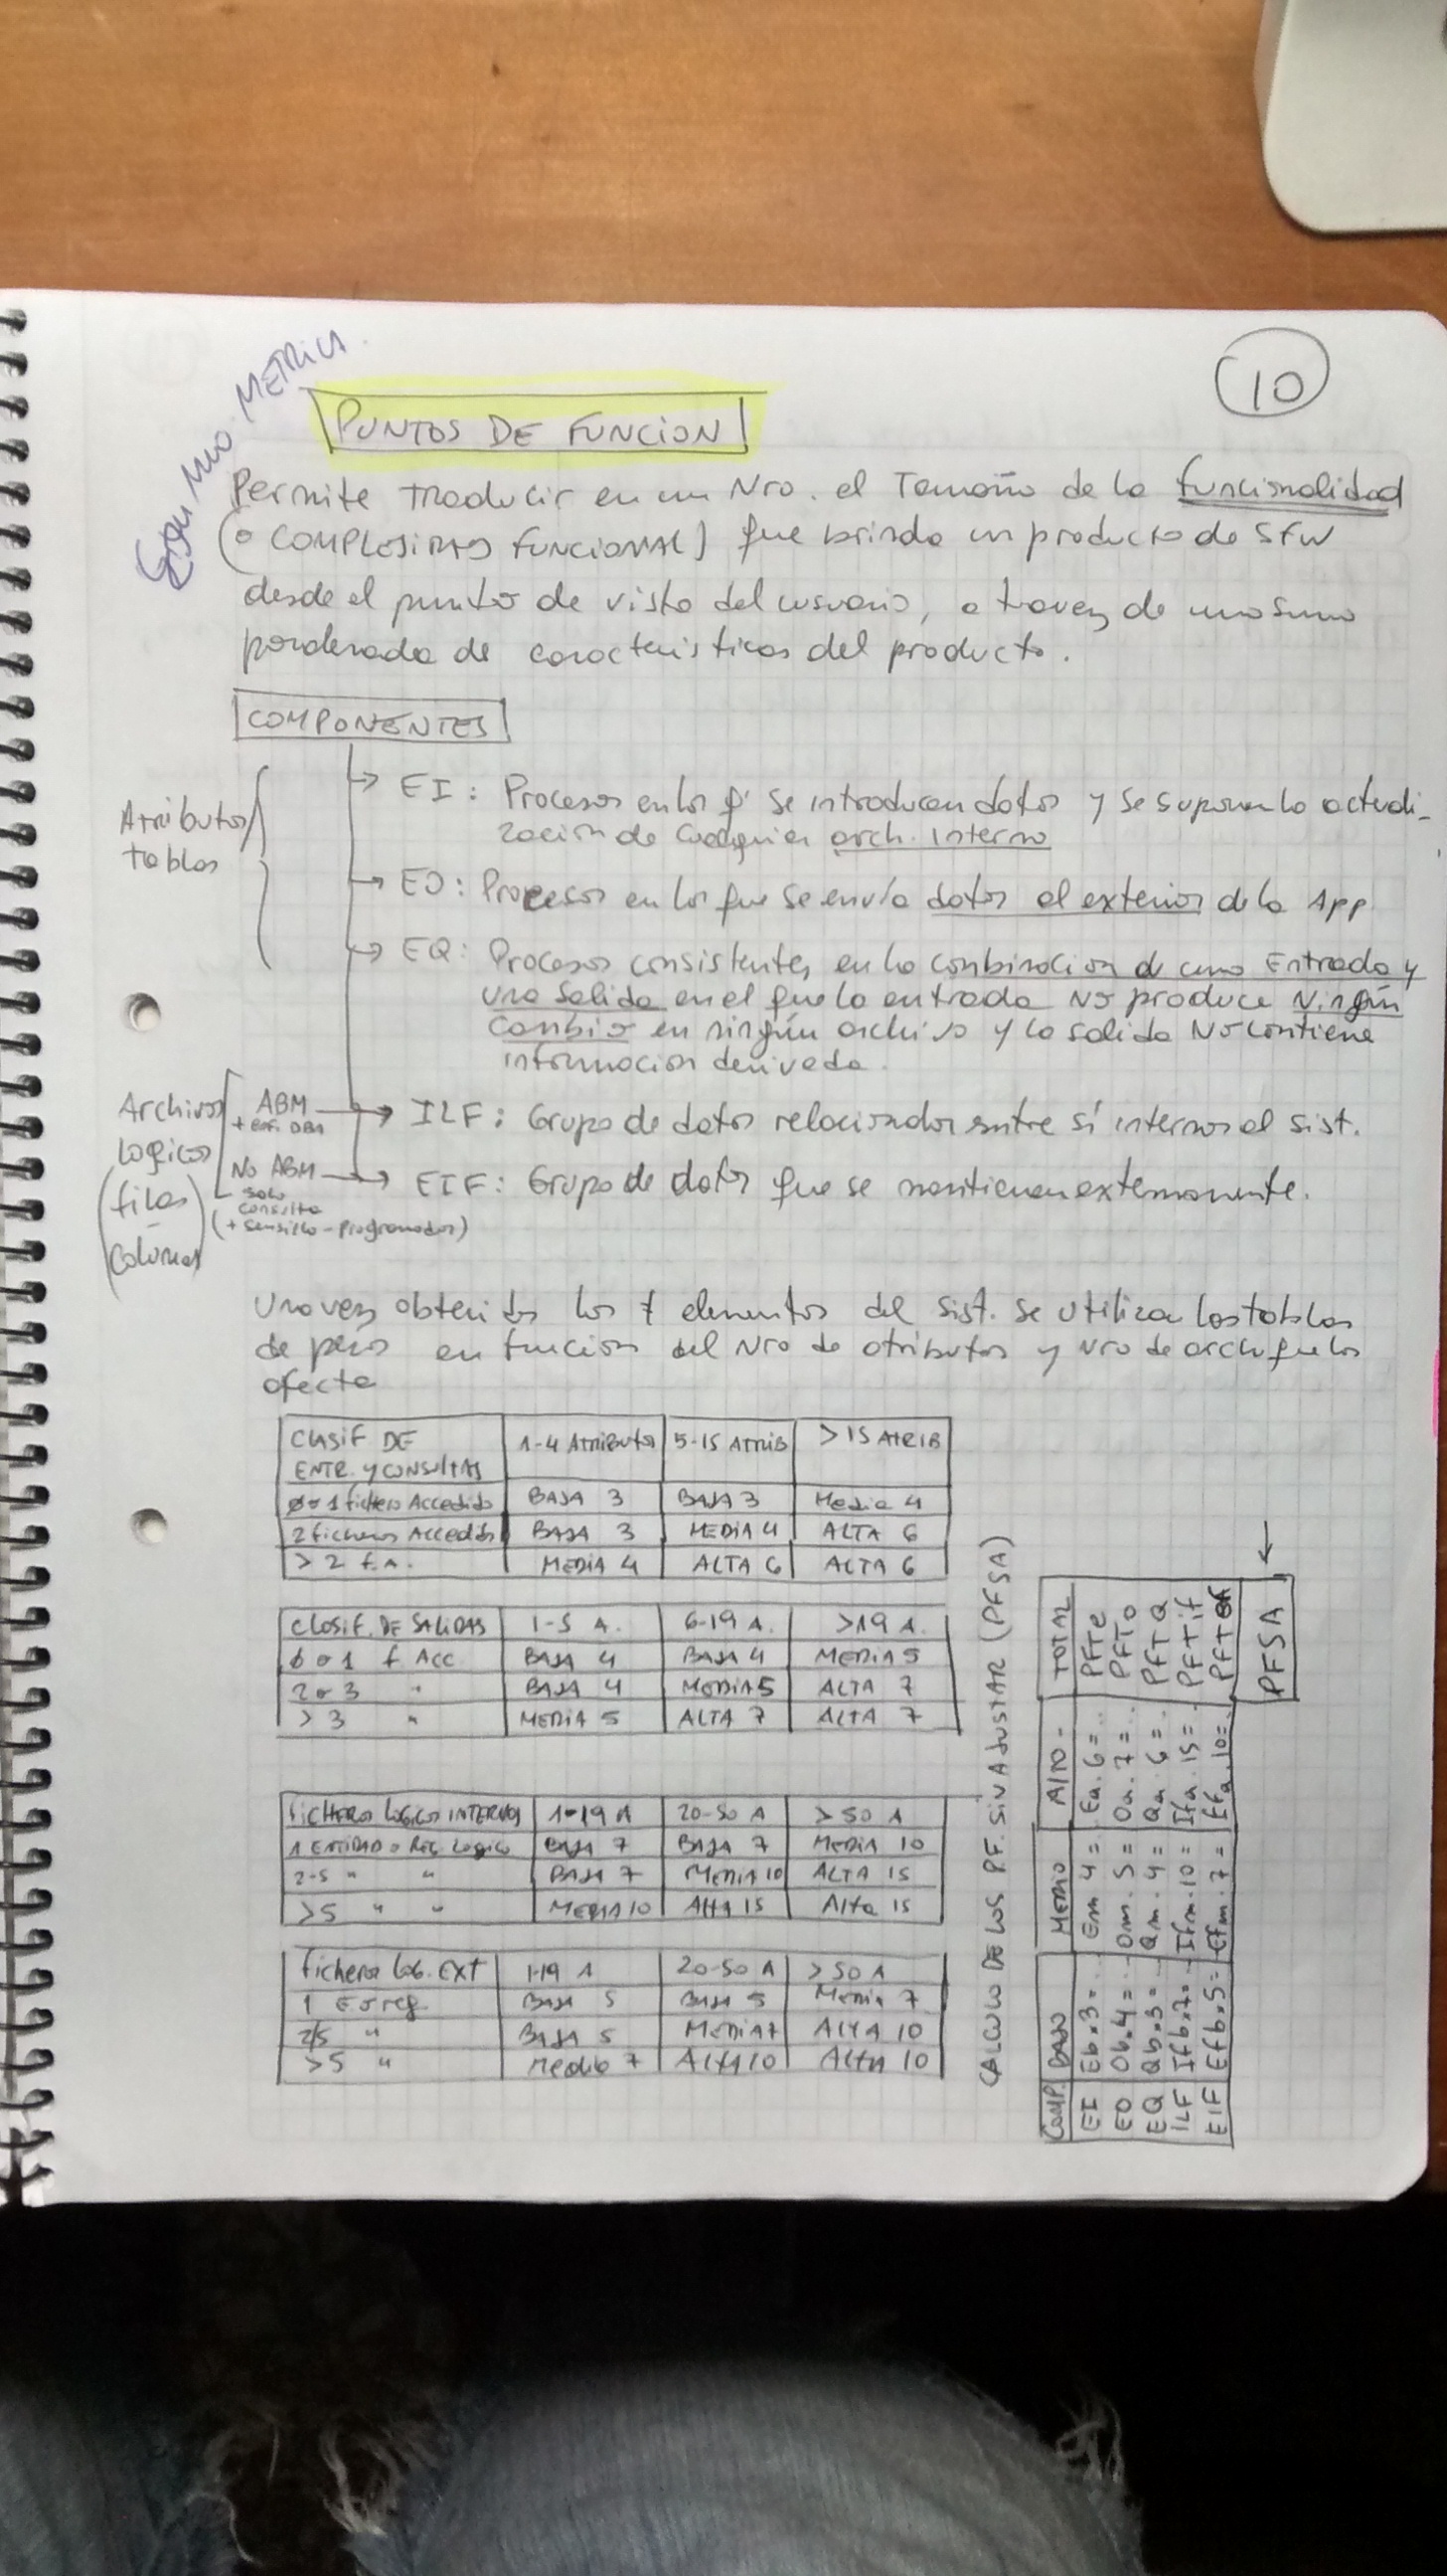 10
METRICA.
PUNTOS DE FUNCION
Permite traducir en un Nro. el Tamaño de la funcionalidad
(o COMPLEJIDAD FUNCIONAL) que brinda un producto de SFW
desde el punto de vista del usuario, a travez de una suma
ponderada de caracteristicas del producto.
COMPONENTES
Atributos/
tablas
EI: Procesos en los q' se introducen datos y se supone la actuali-
zación de cualquier arch. interno
EO: Procesos en los que se envía datos al exterior de la App
EQ: Procesos consistentes en la combinacion de una Entrada y
una Salida en el que la entrada NO produce Ningún
Cambio en ningún archivo y la salida No contiene
informacion derivada.
Archivos
Logicos
(filas
-
Columnas)
ABM
ILF: Grupo de datos relacionados entre sí internos al sist.
No ABM
Solo
Consulta
(+ Sensillo - Programador)
EIF: Grupo de datos que se mantienen externamente.
Una vez obtenidos los elementos del sist. se utiliza las tablas
de peso en funcion del Nro de atributos y Nro de arch que los
afecta
CLASIF DE ENTR. Y CONSULTAS 1-4 Atributos 5-15 ATRIB >15 ATRIB
0 o 1 fichero Accedido BAJA 3 BAJA 3 Media 4
2 ficheros Accedidos BAJA 3 MEDIA 4 ALTA 6
>2 f.A. MEDIA 4 ALTA 6 ALTA 6
Clasif. DE SALIDAS 1-5 A. 6-19 A. >19 A.
0 o 1 f Acc BAJA 4 BAJA 4 MEDIA 5
2 o 3 " BAJA 4 MEDIA 5 ALTA 7
>3 " MEDIA 5 ALTA 7 ALTA 7
FICHEROS LOGICOS INTERNOS 1-19 A 20-50 A >50 A
1 ENTIDAD o Reg Logico BAJA 7 BAJA 7 MEDIA 10
2-5 " " BAJA 7 MEDIA 10 ALTA 15
>5 " " MEDIA 10 Alta 15 Alta 15
Ficheros Log. EXT 1-19 A 20-50 A >50 A
1 E o reg BAJA 5 BAJA 5 Media 7
2/5 " BAJA 5 MEDIA 7 ALTA 10
>5 " Media 7 ALTA 10 ALTA 10
CALCULO DE LOS P.F. SIN AJUSTAR (PFSA)
COMP. BAJO MEDIO ALTO - TOTAL
EI Eb.3=... Em 4=... Ea.6=... PFTe
EO Ob.4=... Om.5=... Oa.7=... PFTO
EQ Qb.3=... Qm.4=... Qa.6=... PFTQ
ILF Ifb.7=... Ifm.10= Ifa.15=. PFTif
EIF Efb.5= Efm.7= Efa.10=.
PFSA